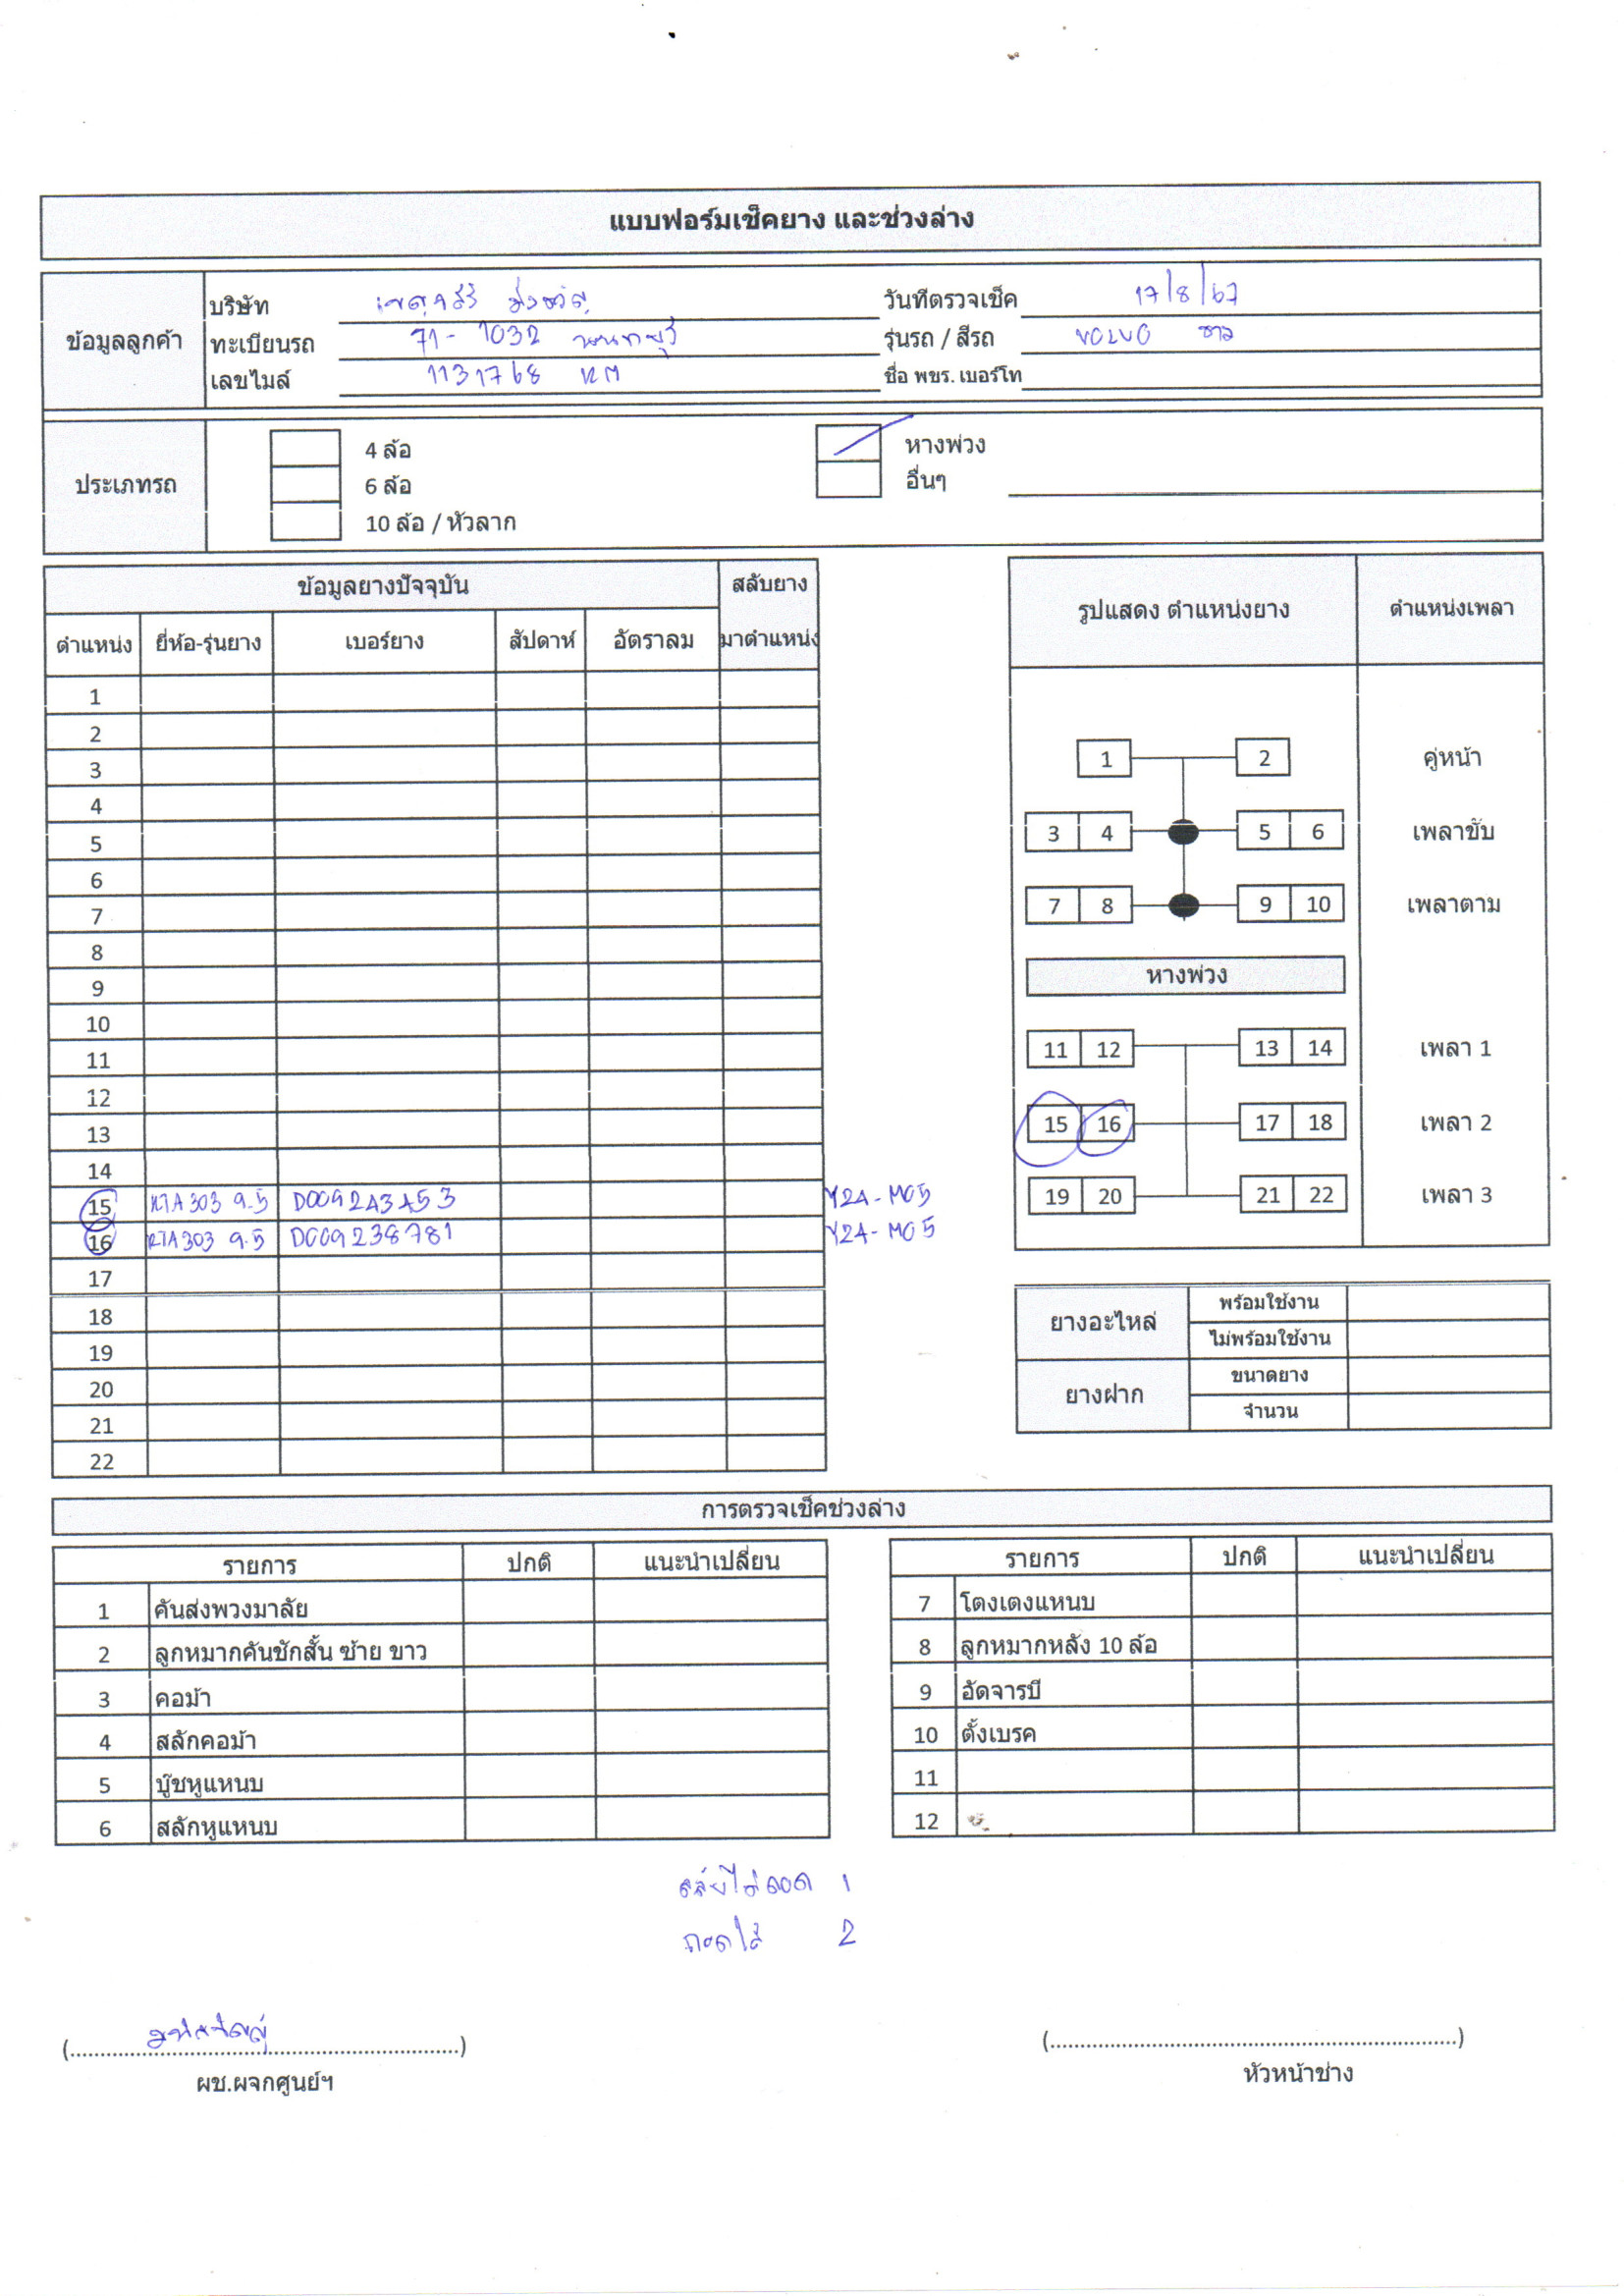 แบบฟอร์มเช็คยาง และช่วงล่าง
ข้อมูลลูกค้า
บริษัท
วันที่ตรวจเช็ค 17/8/67
ทะเบียนรถ 71-1032 นนทบุรี
รุ่นรถ / สีรถ VOLVO ขาว
เลขไมล์ 1131768 KM
ชื่อ พขร. เบอร์โท
ประเภทรถ
4 ล้อ
6 ล้อ
10 ล้อ / หัวลาก
หางพ่วง
อื่นๆ
ข้อมูลยางปัจจุบัน สลับยาง
ตำแหน่ง ยี่ห้อ-รุ่นยาง เบอร์ยาง สัปดาห์ อัตราลม มาตำแหน่ง
1
2
3
4
5
6
7
8
9
10
11
12
13
14
15 RTA303 9.5 D009243453 Y24-M05
16 RTA303 9.5 D009238781 Y24-M05
17
18
19
20
21
22
รูปแสดง ตำแหน่งยาง ตำแหน่งเพลา
1 2 คู่หน้า
3 4 5 6 เพลาขับ
7 8 9 10 เพลาตาม
หางพ่วง
11 12 13 14 เพลา 1
15 16 17 18 เพลา 2
19 20 21 22 เพลา 3
ยางอะไหล่
พร้อมใช้งาน
ไม่พร้อมใช้งาน
ยางฝาก
ขนาดยาง
จำนวน
การตรวจเช็คช่วงล่าง
รายการ ปกติ แนะนำเปลี่ยน
1 คันส่งพวงมาลัย
2 ลูกหมากคันชักสั้น ซ้าย ขาว
3 คอม้า
4 สลักคอม้า
5 บู๊ชหูแหนบ
6 สลักหูแหนบ
รายการ ปกติ แนะนำเปลี่ยน
7 โตงเตงแหนบ
8 ลูกหมากหลัง 10 ล้อ
9 อัดจารบี
10 ตั้งเบรค
11
12
สลับไม่ถอด 1
ถอดใส่ 2
(........................)
ผช.ผจกศูนย์ฯ
(........................)
หัวหน้าช่าง